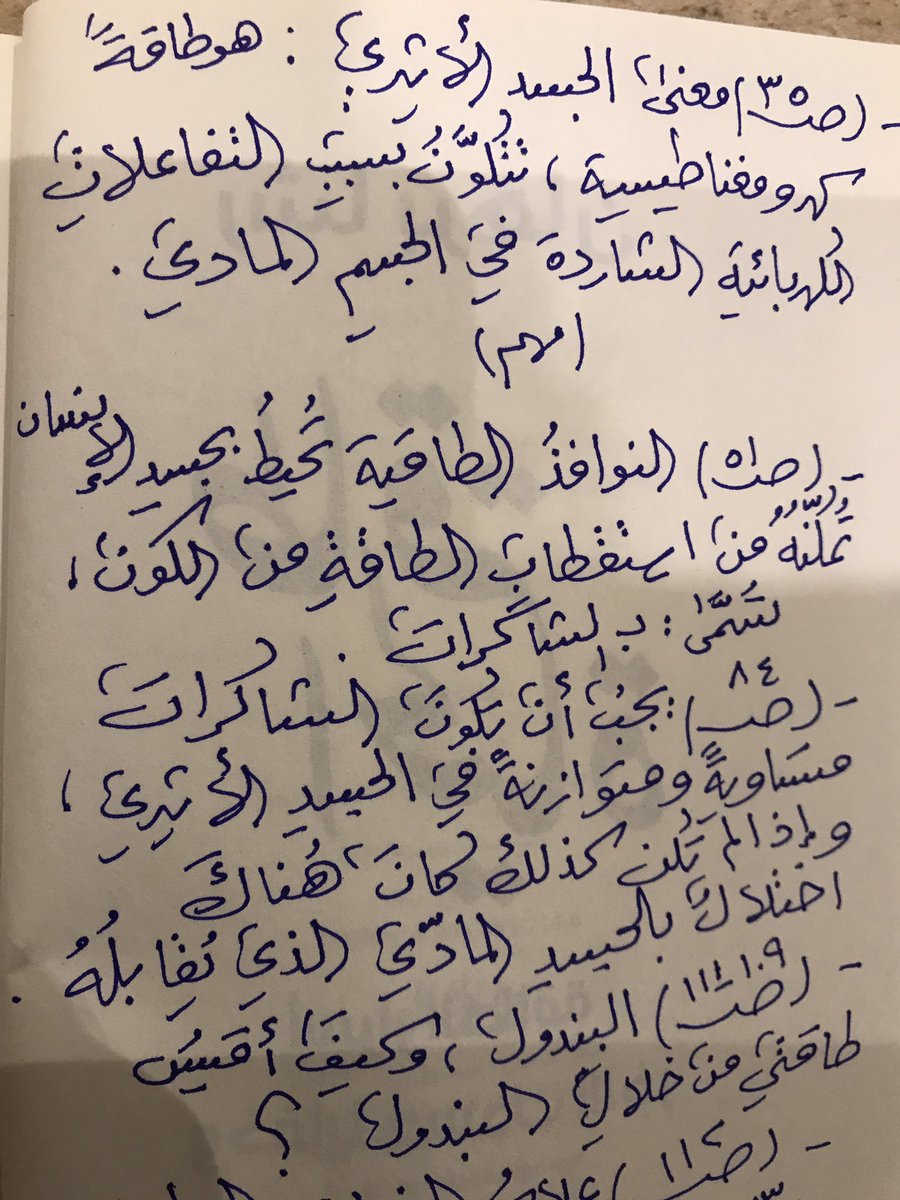 - (ص٣٥) معنى الجسد الأثيري : هو طاقةً
كهرومغناطيسية ، تتلوَّنُ بسببِ التفاعلاتِ
الكهربائية الشاردة في الجسمِ المادي .
(مهم)
- (ص٥١) النوافذُ الطاقية تُحيطُ بجسدِ الإنسان
من استقطابِ الطاقةِ من الكون ،
تسمَّى : بالشاكرات .
- (ص٨٤) : يجبُ أن تكونَ الشاكرات
متساويةً ومتوازنةً في الجسدِ الأثيري ،
وإذا لم تكن كذلك كانَ هُناكَ
اختلاك بالجسدِ المادّي الذي تُقابلُهُ .
- (ص١٠٩-١١١) البندول ، وكيفَ أقيسُ
طاقتي من خلالِ البندول ؟
- (ص١١٢)